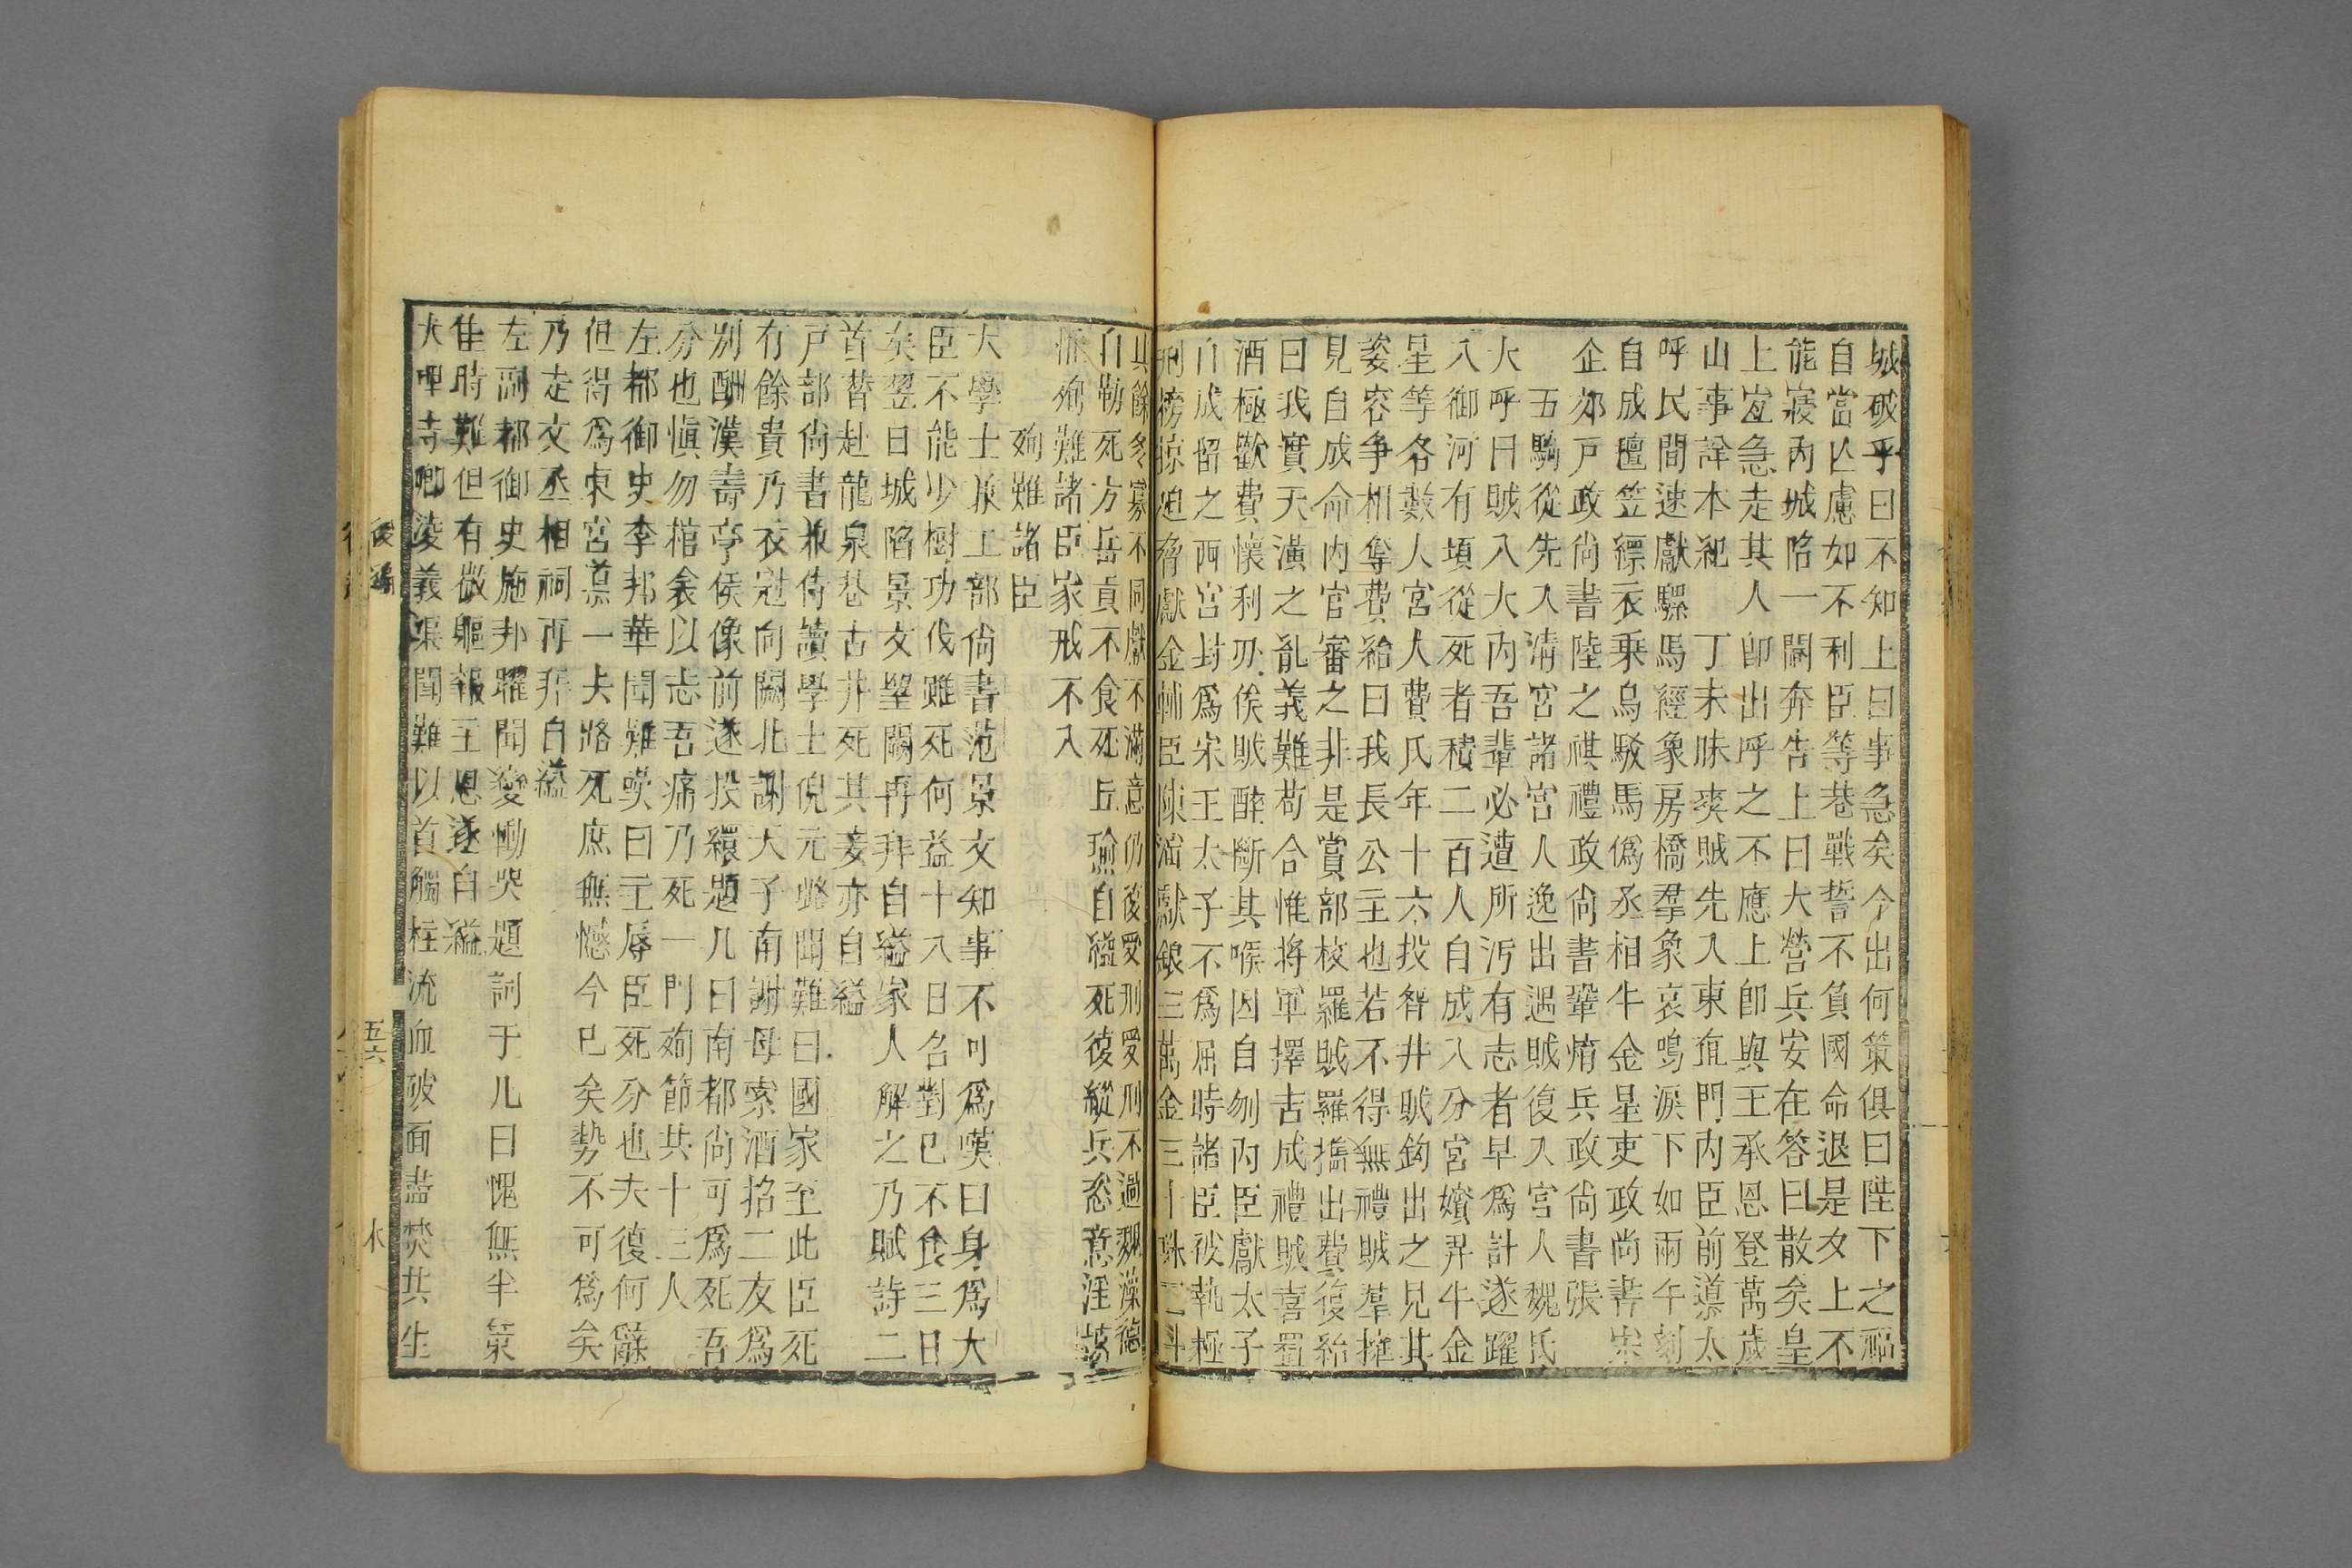 城破乎曰不知上曰事急矣今出何策俱曰陛下之福
自當亾慮如不利臣等巷戰誓不負國命退是夕上不
能寢內城陷一閹奔告上曰大營兵安在答曰散矣皇
上宜急走其人卽出呼之不應上卽與王承恩登萬歲
山事詮本紀　丁未昧爽賊先入東直門內臣前導太
呼民間速獻騾馬經象房橋羣象哀鳴淚下如雨午刻
自成氊笠縹衣乗烏駁馬僞丞相牛金星吏政尚書宋
企郊戸政尚書陸之祺禮政尚書鞏焴兵政尚書張
五騶從先入淸宮諸宮人逸出遇賊復入宮人魏氏
大呼曰賊入大內吾輩必遭所汚有志者早爲計遂躍
入御河有頃從死者積二百人自成入分宮嬪畀牛金
星等各數人宮人費氏年十六投智井賊鉤出之見其
姿容爭相奪費紿曰我長公主也若不得無禮賊羣擁
見自成命內官審之非是賞部校羅賊羅攜出費復紿
曰我實天潢之亂義難苟合惟將軍擇吉成禮賊喜置
酒極歡費懷利刃俟賊醉斷其喉因自刎內臣獻太子
自成留之西宮封爲宋王太子不爲屈時諸臣被執極
刑榜掠追脅獻金輔臣陳演獻銀三萬金三
其餘多寡不同獻不滿意仍後受刑受刑不過魏藻德
自勒死方岳貢不食死丘瑜自縊死復縱兵恣意淫
殉難諸臣家戒不入
殉難諸臣
大學士兼工部尚書范景文知事不可爲嘆曰身爲大
臣不能少樹功伐雖死何益十八日名對已不食三日
矣翌日城陷景文望闕再拜自縊家人解之乃賦詩二
首替赴龍泉巷古井死其妾亦自縊
戸部尚書兼侍讀學士倪元璐聞難曰國家至此臣死
有餘責乃衣冠向闕北謝天子南謝母索酒招二友爲
別酬漢壽亭侯像前遂投繯題几曰南都尚可爲死吾
分也愼勿棺衾以志吾痛乃死一門殉節共十三人
左都御史李邦華聞難嘆曰主辱臣死分也夫復何辭
但得爲東宮導一去路死庶無憾今已矣勢不可爲矣
乃走文丞相祠再拜自縊
左副都御史施邦曜聞變慟哭題詞于几曰愧無半策
匡時難但有微軀報主恩遂自縊
大理寺卿淩義渠聞難以首觸柱流血破面盡焚共生
後編
五六